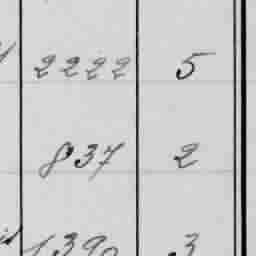 2222 5
837 2
1390 3